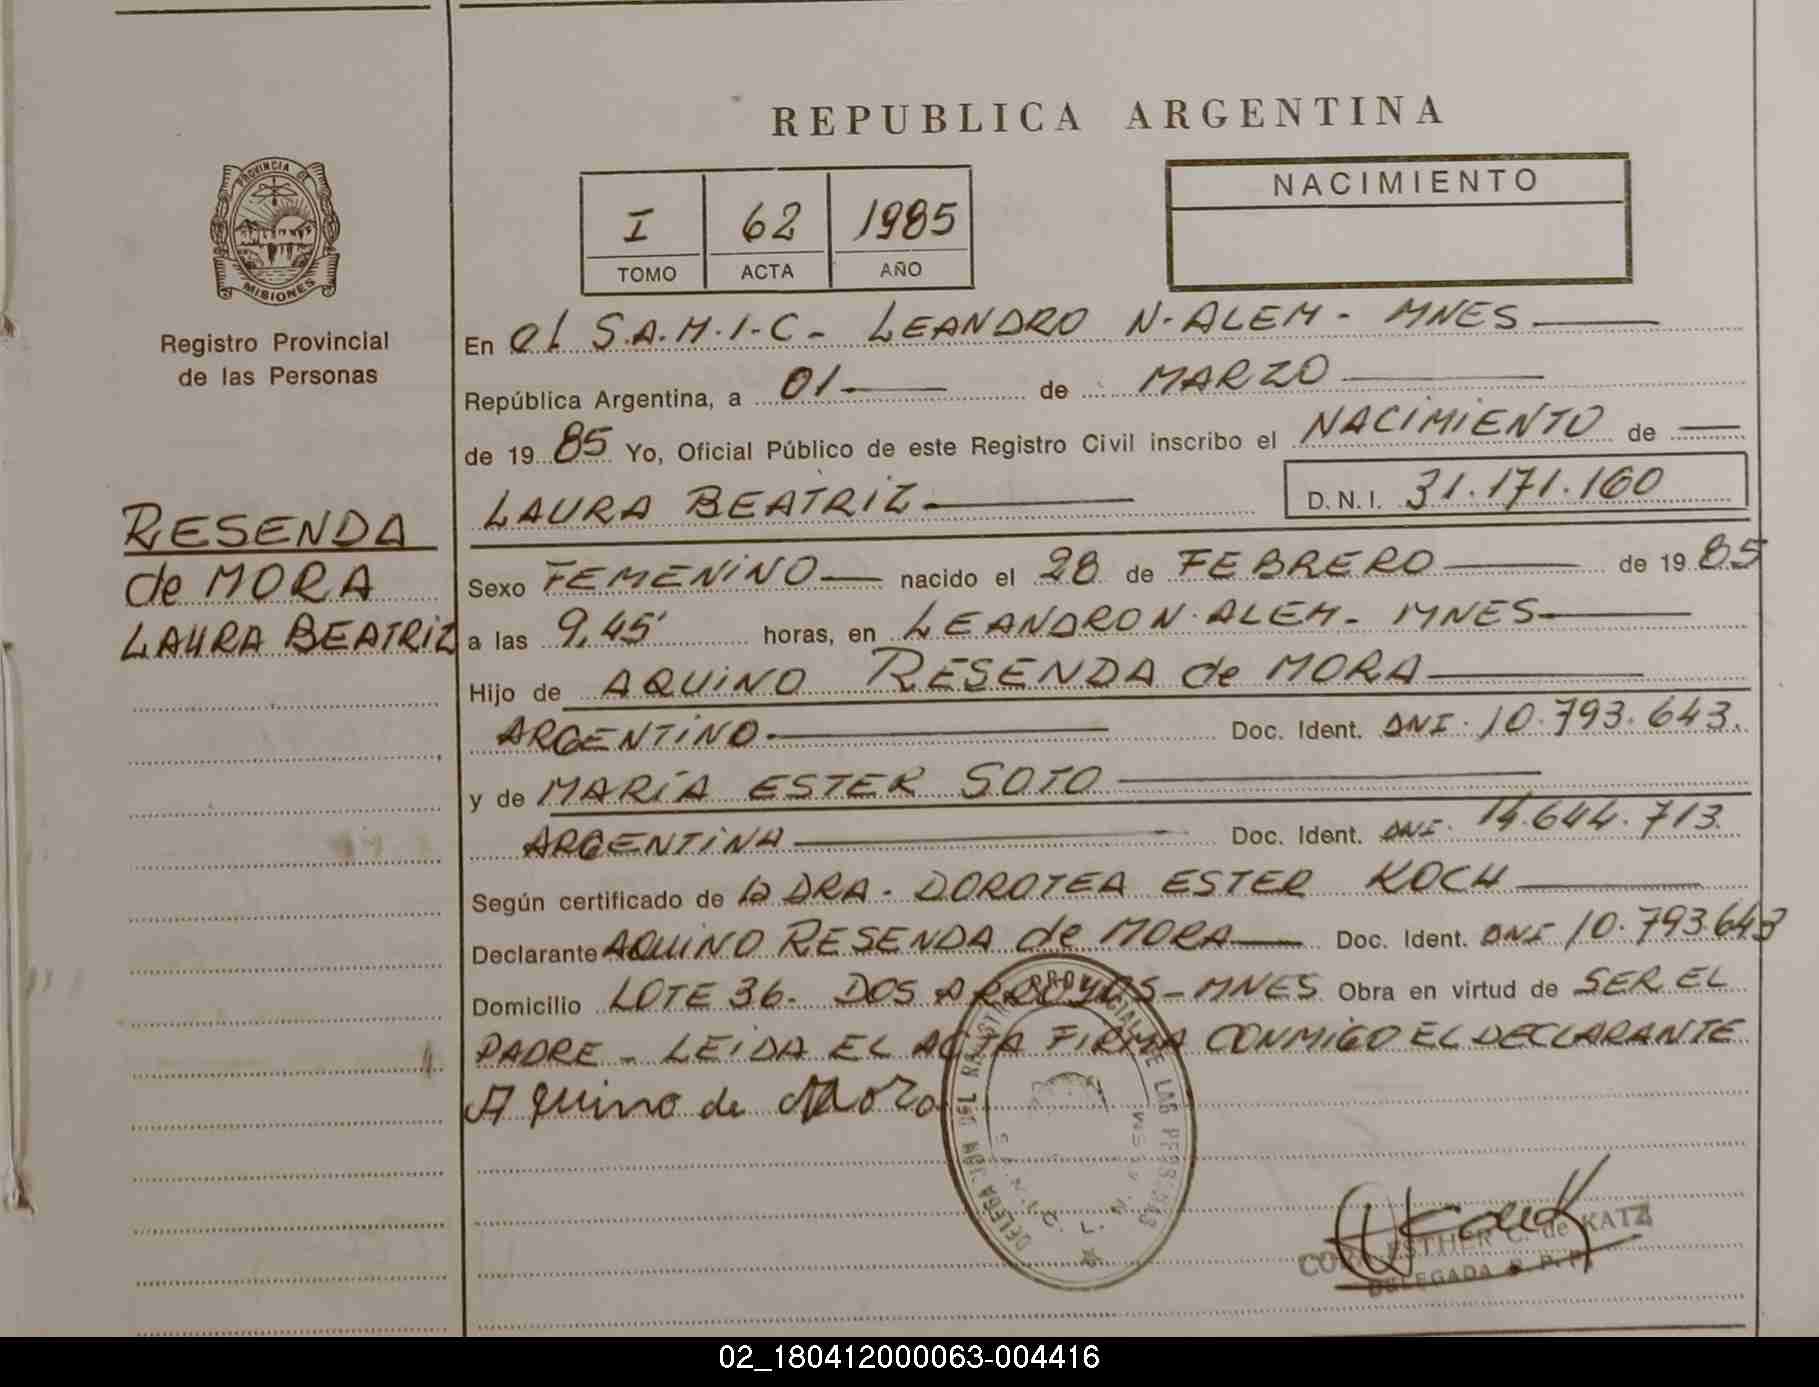 REPUBLICA ARGENTINA
PROVINCIA DE
MISIONES
Registro Provincial
de las Personas
I 62 1985
TOMO ACTA AÑO
NACIMIENTO
En el S.A.M.I.C- LEANDRO N.ALEM- MNES
República Argentina, a 01 de MARZO
de 19 85 Yo, Oficial Público de este Registro Civil inscribo el NACIMIENTO de
LAURA BEATRIZ D.N.I. 31.171.160
RESENDA
de MORA
LAURA BEATRIZ
Sexo FEMENINO nacido el 28 de FEBRERO de 19 85
a las 9,45' horas, en LEANDRO N.ALEM- MNES
Hijo de AQUINO RESENDA de MORA
ARGENTINO Doc. Ident. DNI. 10.793.643.
y de MARÍA ESTER SOTO
ARGENTINA Doc. Ident. DNI. 14.644.713.
Según certificado de la DRA. DOROTEA ESTER KOCH
Declarante AQUINO RESENDA de MORA Doc. Ident. DNI 10.793.643
Domicilio LOTE 36- DOS ARROYOS-MNES Obra en virtud de SER EL
PADRE - LEIDA EL ACTA FIRMA CONMIGO EL DECLARANTE
Aquino de Mora
ESTHER C. de KATZ
DELEGADA R. P. P.
02_180412000063-004416